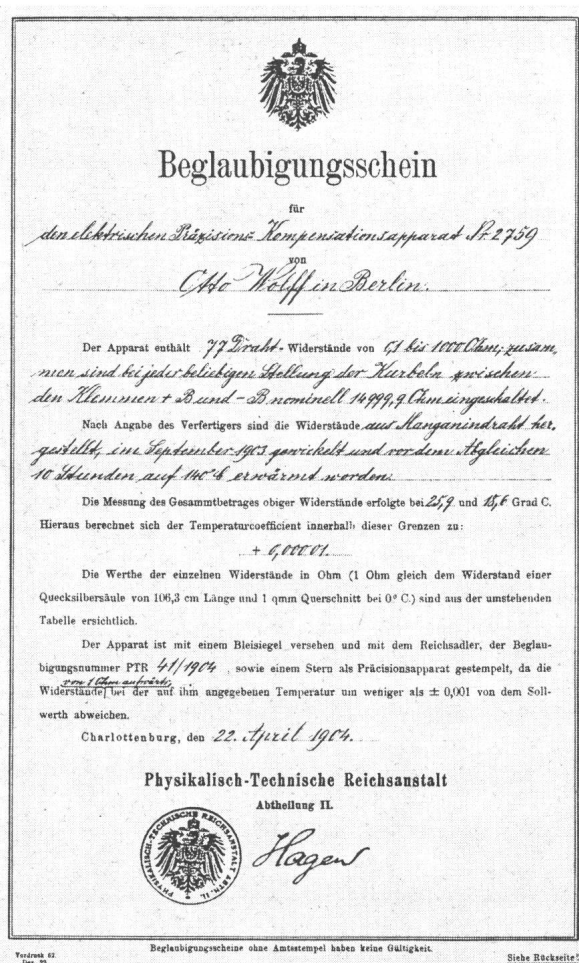 Beglaubigungsschein
für
den elektrischen Präzisions-Kompensationsapparat Nr. 2759
von
Otto Wolff in Berlin.
Der Apparat enthält 77 Draht-Widerstände von 0,1 bis 1000 Ohm; zusam-
men sind bei jeder beliebigen Stellung der Kurbeln zwischen
den Klemmen + B und - B nominell 14999,9 Ohm eingeschaltet.
Nach Angabe des Verfertigers sind die Widerstände aus Manganindraht her-
gestellt, im September 1903 gewickelt und vor dem Abgleichen
10 Stunden auf 140° erwärmt worden.
Die Messung des Gesammtbetrages obiger Widerstände erfolgte bei 25,9 und 15,6 Grad C.
Hieraus berechnet sich der Temperaturcoefficient innerhalb dieser Grenzen zu:
+ 0,00001.
Die Werthe der einzelnen Widerstände in Ohm (1 Ohm gleich dem Widerstand einer
Quecksilbersäule von 106,3 cm Länge und 1 qmm Querschnitt bei 0° C.) sind aus der umstehenden
Tabelle ersichtlich.
Der Apparat ist mit einem Bleisiegel versehen und mit dem Reichsadler, der Beglau-
bigungsnummer PTR 41/1904, sowie einem Stern als Präcisionsapparat gestempelt, da die
von 1 Ohm aufwärts,
Widerstände bei der auf ihm angegebenen Temperatur um weniger als ± 0,001 von dem Soll-
werth abweichen.
Charlottenburg, den 22. April 1904.
Physikalisch-Technische Reichsanstalt
Abtheilung II.
PHYSIKALISCH-TECHNISCHE REICHSANSTALT ABTH. II.
Hagen
Beglaubigungsscheine ohne Amtsstempel haben keine Gültigkeit.
Vordruck 62.
Siehe Rückseite!